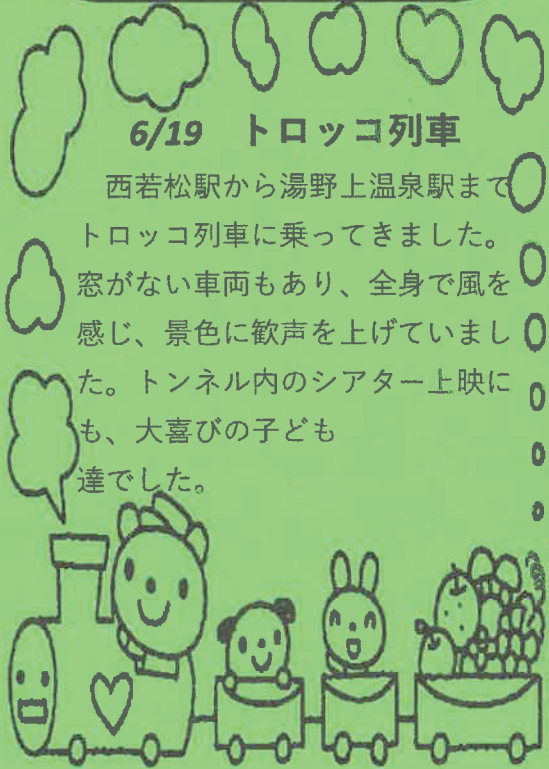 6/19　トロッコ列車
西若松駅から湯野上温泉駅まで
トロッコ列車に乗ってきました。
窓がない車両もあり、全身で風を
感じ、景色に歓声を上げていまし
た。トンネル内のシアター上映に
も、大喜びの子ども
達でした。